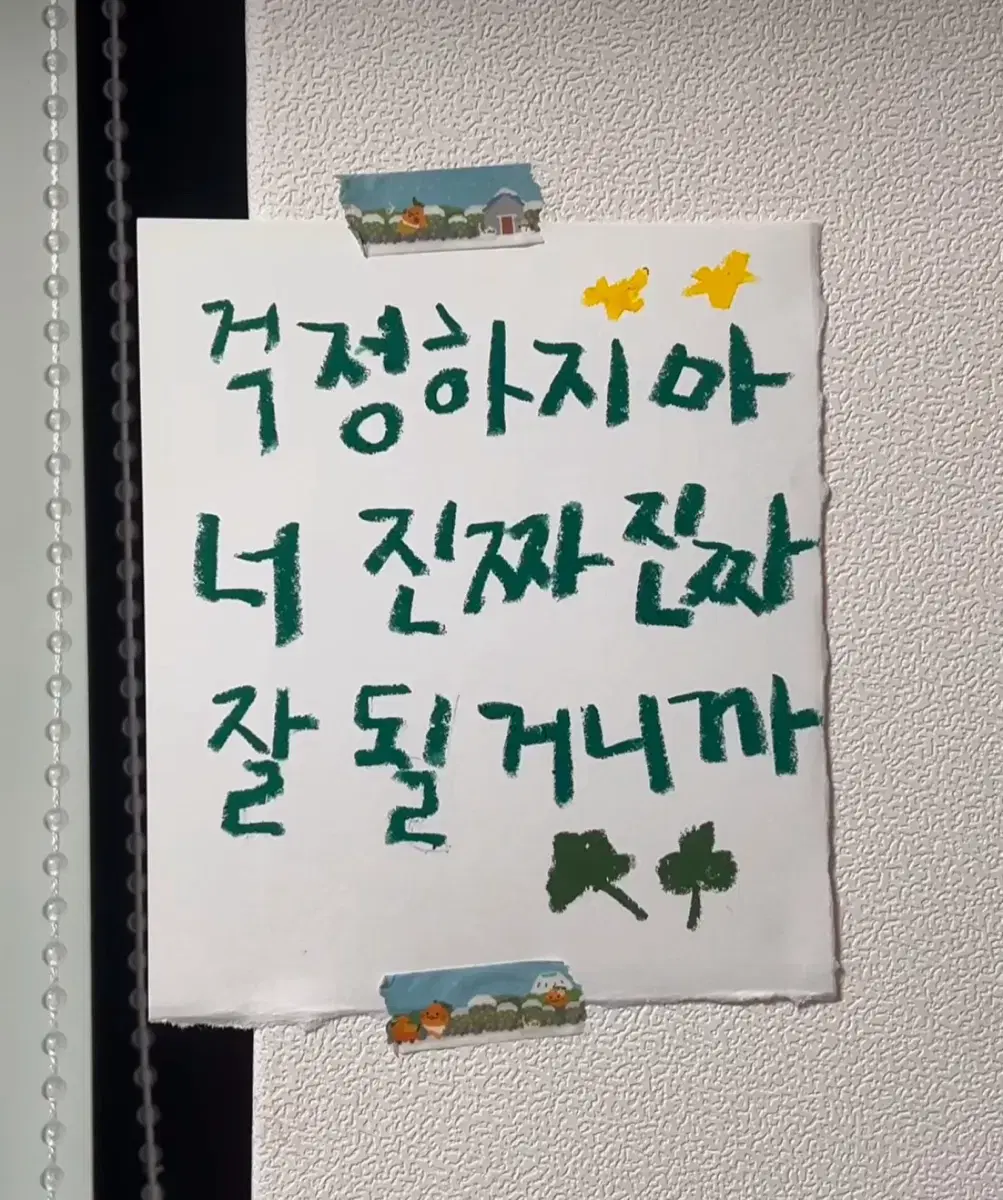 걱정하지마
너 진짜진짜
잘 될 거니까